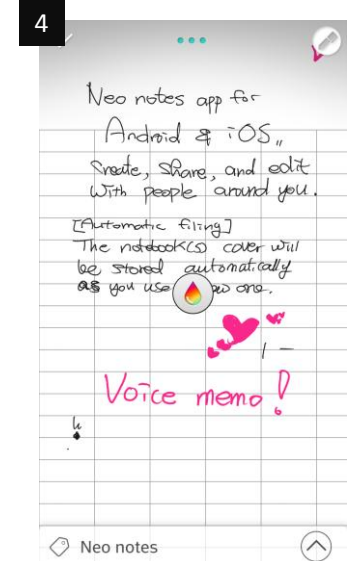 4
Neo notes app for
Android & iOS,,
Create, share, and edit
with people around you.
[Automatic filing]
The notebook(s) cover will
be stored automatically
as you use one.
Voice memo!
Neo notes